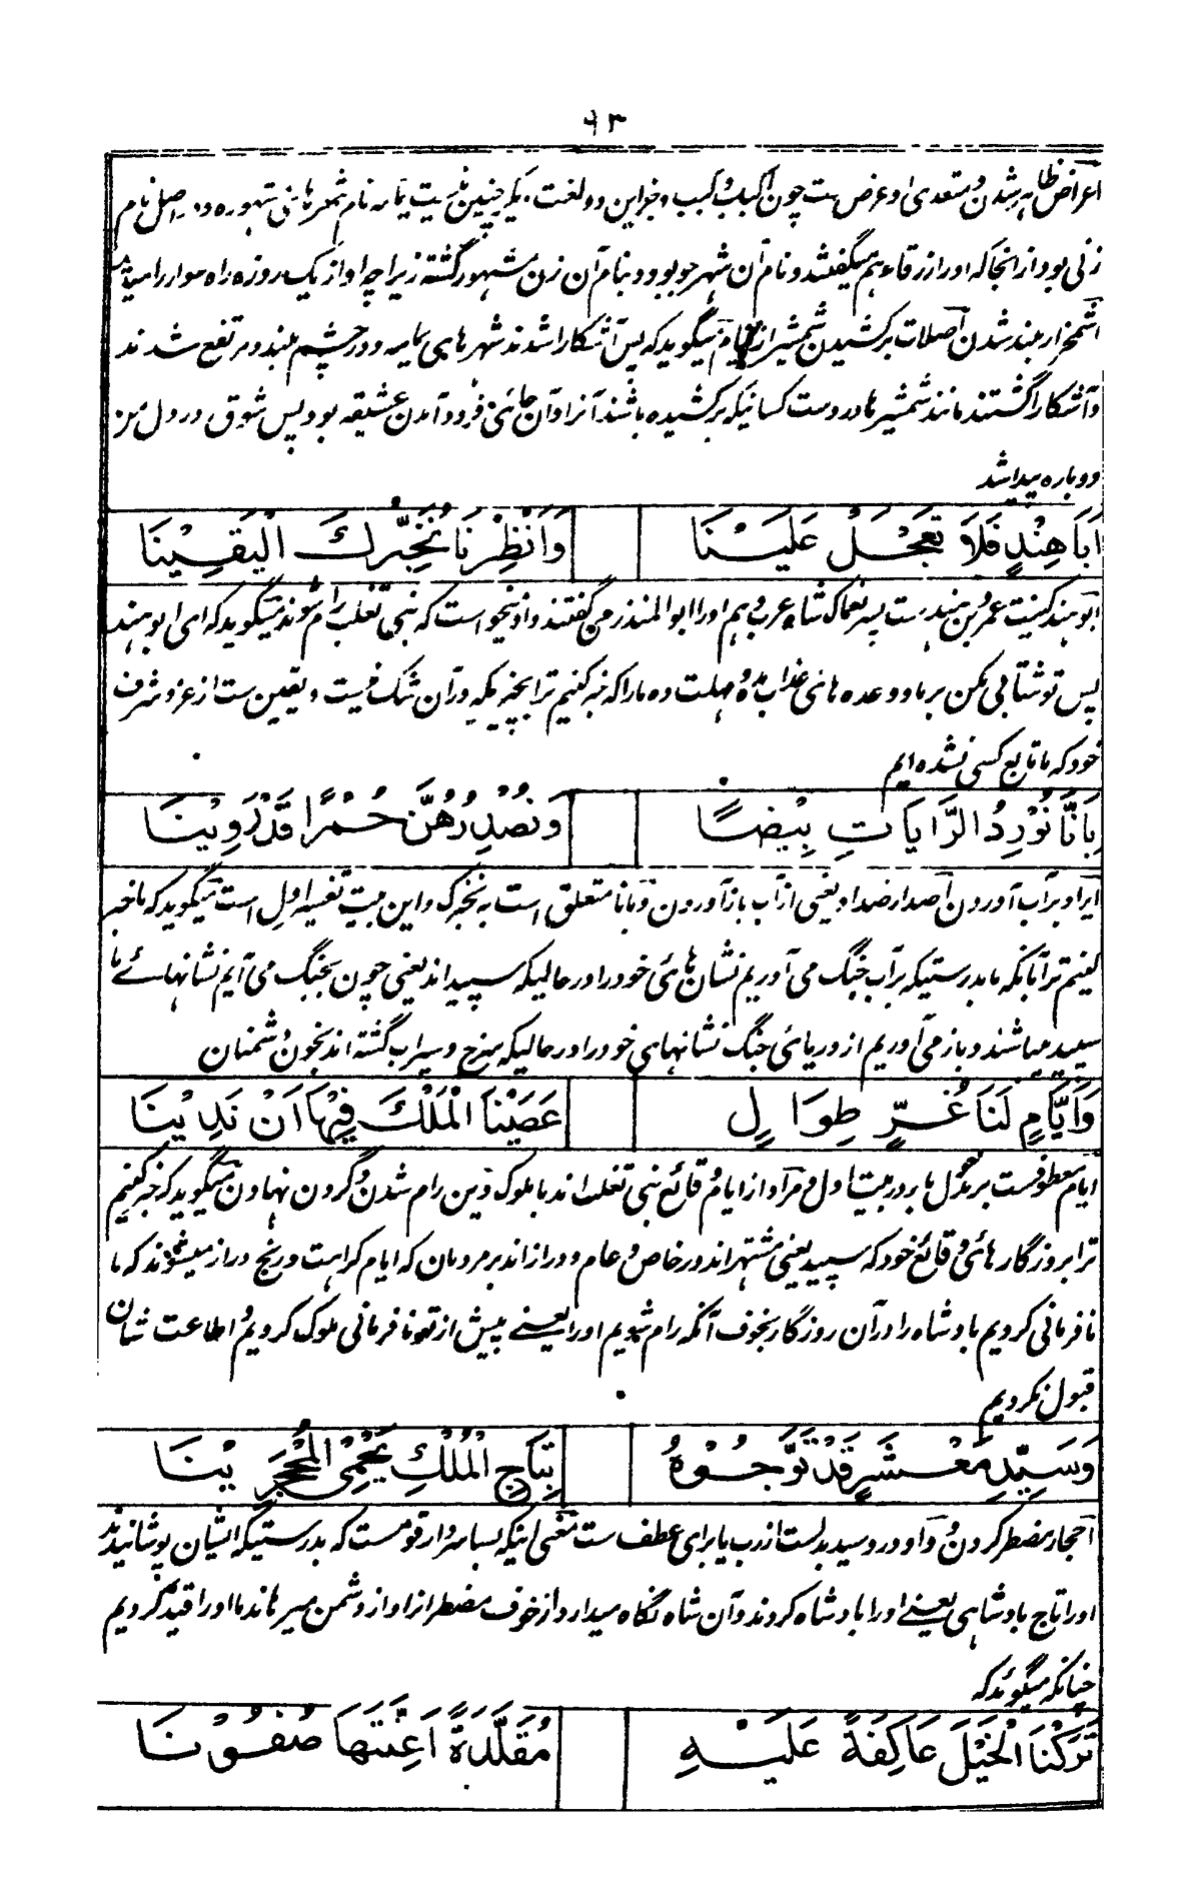 ۶۳
اعراض ظاهر شدن و متعدی او عرض ست چون اکباب و کبب و جز این دو لغت دیگر چنین نیست یمامه نام شهرهائی مشهوره و در اصل نام
زنی بود از انجا که او را زرقاء هم میگفتند و نام آن شهر جو بود و بنام آن زن مشهور گشته زیرا چه او از یک روزه راه سوار را میدید
اشمخرار بلند شدن اصلات برکشیدن شمشیر از نیام میگوید که پس آشکارا شدند شهرهای یمامه و در چشم بلند و مرتفع شدند
و آشکارا گشتند مانند شمشیرها در دست کسانیکه برکشیده باشند آنرا و آن جائی فرود آمدن عشیقه بود پس شوق در دل من
دوباره پیدا شد
اَبَا هِنْدٍ فَلَا تَعْجَلْ عَلَيْنَا وَاَنْظِرْنَا نُخَبِّرْكَ الْيَقِينَا
ابو هند کنیت عمرو بن هند ست پسر نعمان که شاه عرب و هم او را ابو المنذر می گفتند و او میخواست که بنی تغلب رام شوند میگوید که ای ابو هند
پس تو شتابی مکن بر ما و وعده های عذاب مده و مهلت ده ما را که خبر کنیم ترا بچیزیکه در آن شک نیست و یقین ست از عز و شرف
خود که ما تابع کسی نشده ایم
بِاَنَّا نُوْرِدُ الرَّايَاتِ بِيْضًا وَنُصْدِرُهُنَّ حُمْرًا قَدْ رَوِيْنَا
ایراد بر آب آوردن اصدار ضد او یعنی از آب باز آوردن و بانا متعلق است به نخبرک و این بیت تفسیر اول است میگوید که ما خبر
کنیم ترا بانکه ما بدرستیکه بر آب جنگ می آوریم نشان هائی خود را در حالیکه سپید اند یعنی چون بجنگ می آیم نشانهائے ما
سپید میباشند و باز می آوریم از دریائی جنگ نشانهای خود را در حالیکه سرخ و سیراب گشته اند بخون دشمنان
وَاَيَّامٍ لَنَا غُرٍّ طِوَالٍ عَصَيْنَا الْمَلْكَ فِيْهَا اَنْ نَدِيْنَا
ایام معطوفست بر مدخول با در بیت اول و مراد از ایام وقائع بنی تغلب اند با ملوک و دین رام شدن و گردن نهادن میگوید که خبر کنیم
ترا بروزگارهائی وقائع خود که سپید یعنی مشتهر اند در خاص و عام و دراز اند بر مردمان که ایام کراهت و رنج دراز میشوند که ما
نافرمانی کردیم بادشاه را در آن روزگار بخوف آنکه رام شویم او را یعنے پیش از تو نافرمانی ملوک کردیم و اطاعت شان
قبول نکردیم
وَسَيِّدِ مَعْشَرٍ قَدْ تَوَّجُوْهُ بِتَاجِ الْمُلْكِ يَحْمِى الْمُحْجَرِيْنَا
احجار مضطر کردن و واو در و سید بدلست از رب یا برای عطف ست معنی اینکه بسا سردار قومست که بدرستیکه ایشان پوشانیدند
او را تاج بادشاهی یعنے او را بادشاه کردند و آن شاه نگاه میدارد از خوف مضطر انرا و از دشمن میرهاند ما او را قید کردیم
چنانکه میگوید که
تَرَكْنَا الْخَيْلَ عَاكِفَةً عَلَيْهِ مُقَلَّدَةً اَعِنَّتَهَا صُفُوْنَا